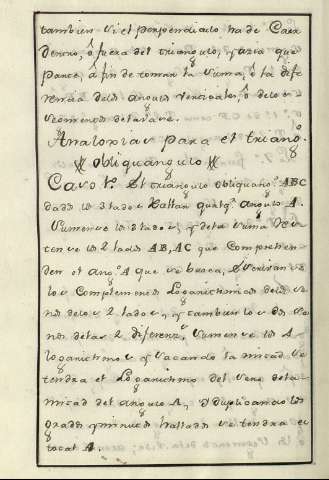 tambien si el perpendiculo ha de Caer
dentro, ô fuera del triangulo, y para que
parte, â fin de tomar la suma, ô la dife
rencia delos angulos verticales, ô delos
segmentos dela vasa.
Analogias para el triang.º
obliquangulo
Caso 1.º El triangulo obliquang.º ABC
dados los 3 lados hallar qualq.ª angulo A.
Sumense los 3 lados, y desta suma Res
tense los 2 lados AB, AC que Comprehen
den el ang.º A que se busca, Escrivanse
los Complementos Logarithmicos delos se
nos delos 2 lados, y tambien los delos se
nos delas 2 diferenz.s sumense los 4
logarithmos y sacando la mitad se
tendra el Logarithmo del seno dela
mitad del angulo A, y duplicando los
grados y minutos hallados se tendra el
total A.